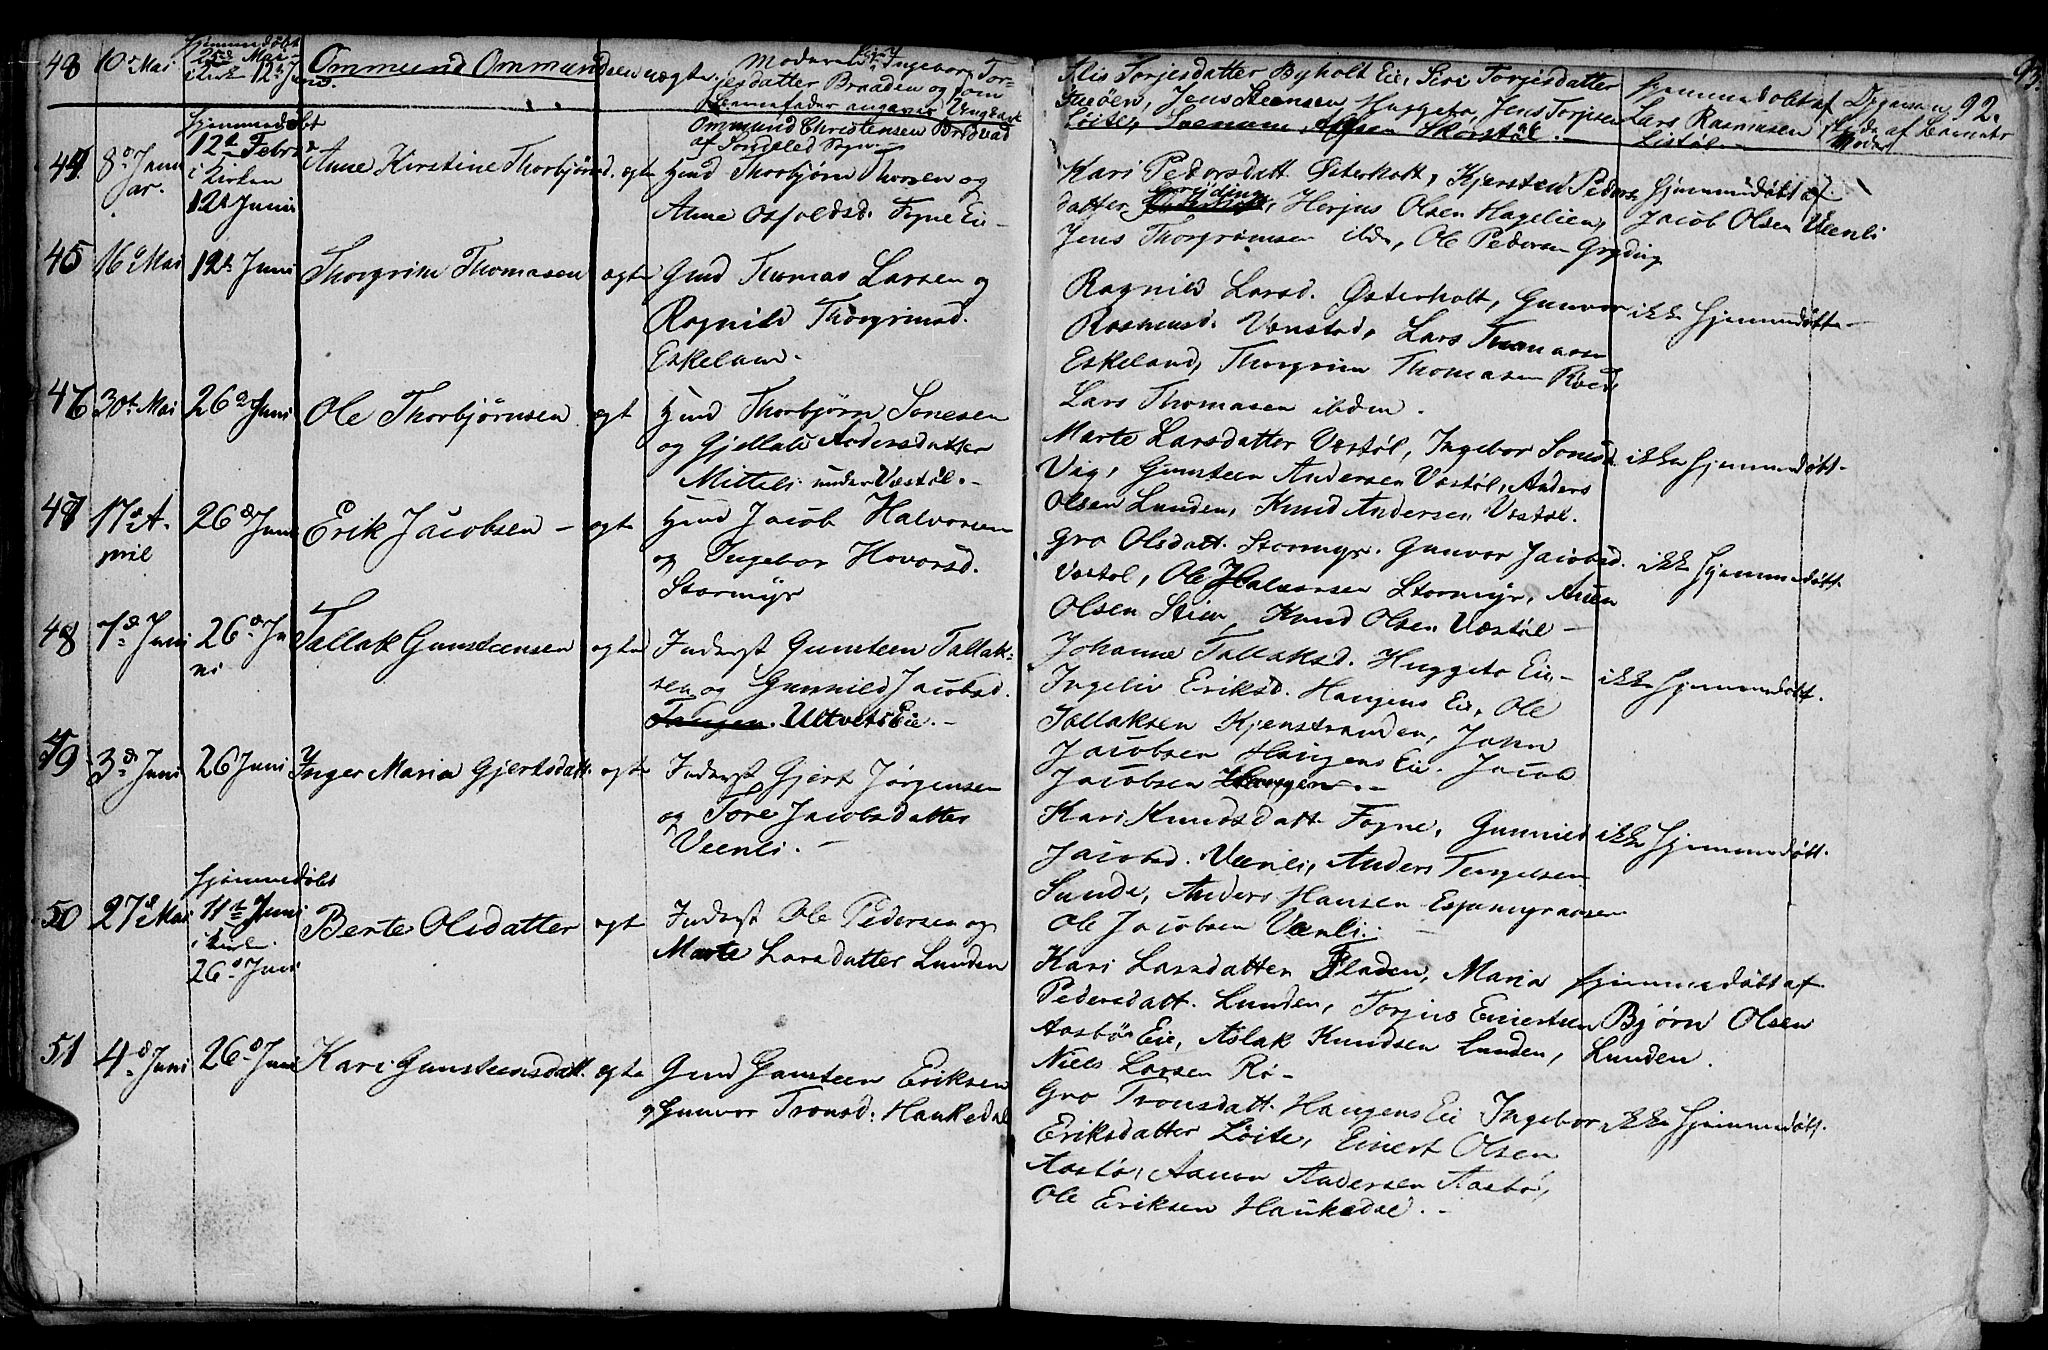 93.
43 10de Mai hjemmedøbt
25de Mai
i kirk 12te Juni Ommund Ommundsen uægte. Moderen Pi. Ingebor Tor-
jesdatter Braaden og som
Barnefader angaves Ungkarl
Ommund Christensen Brødvad
af Søndeled Sogn.
Alis Torjesdatter Byholt Eie, Siri Torjesdatter
Jens Steensen Huggeto, Jens Torjesen
Løite, Skørstøl.
hjemmedøbt af
Lars Rasmusen
Listøl
92.
44 8de Janu
ar. hjemmedøbt
12te Febru
i kirken
12te Junii Anne Kirstine Thorbjørnsd. ægte Hmd Thorbjørn Thorsen og
Anne Osfoldsd. Fogne Eie —
Kari Pedersdatt. Østerholt, Kjersten Peders
datter Gryding, Herjus Olsen Hagelien,
Jens Thorgrimsen ibdn, Ole Pedersen Gryding
hjemmedøbt af
Jacob Olsen Veenli
45 16de Mai 12te Juni Thorgrim Thomasen ægte Gmd Thomas Larsen og
Ragnild Thorgrimsd.
Eskeland.
Ragnild Larsd. Østerholt, Gunvor
Rasmusd. Vænstad, Lars Thomasen
Eskeland, Thorgrim Thomasen Røed,
Lars Thomasen ibden.
ikke hjemmedøbt —
46 30te Mai 26de Juni Ole Thorbjørnsen ægt Hmd Thorbjørn Sonesen
og Gjellau Andersdatter
Mitteli under Væstøl. —
Marte Larsdatter Væstøl, Ingebor Sonesd.
Vig, Gunsteen Andersen Væstøl, Anders
Olsen Lunden, Knud Andersen Væstøl.
ikke hjemmedøbt.
47 17de A-
pril 26de Juni Erik Jacobsen — ægte Hmd Jacob Halvorsen
og Ingebor Hovorsd.
Stormyr
Gro Olsdatt. Stormyr. Gunvor Jacobsd.
Væstøl, Ole Halvorsen Stormyr, Anen
Olsen Stien, Knud Olsen Væstøl —
ikke hjemmedøbt.
48 7de Juni 26de Ju
ni Tallak Gunsteensen ægte Inderst Gunsteen Tallak-
sen og Gunnild Jacobsd.
Tangen. Ultvets Eie. —
Johanne Tallaksd. Huggeto Eie —
Ingeliv Eriksd. Haugens Eie, Ole
Tallaksen Kjenstranden, John
Jacobsen Haugens Eie. Jacob
Jacobsen Haugen. —
ikke hjemmedøbt.
49 3de Juni 26 Juni Inger Maria Gjertsdatt. ægte Inderst Gjert Jørgensen
og Tore Jacobsdatter
Veenli. —
Kari Knudsdatt. Fogne, Gunnild
Jacobsd. Veenli, Anders Tengelsen
Sunde, Anders Hansen Espamyraasen
Ole Jacobsen Veenli.
ikke hjemmedøbt.
50 27de Mai hjemmedøbt
11te Juni
i kirk.
26de Juni Berte Olsdatter ægt Inderst Ole Pedersen og
Marte Larsdatter Lunden
Kari Larsdatter Fladen, Maria
Pedersdatt. Lunden, Torjus Einertsen
Aasbø Eie, Aslak Knudsen Lunden,
Niels Larsen Rø —
hjemmedøbt af
Bjørn Olsen
Lunden.
51 4de Juni 26de Juni Kari Gunsteensdatt. ægte Gmd Gunsteen Eriksen
og Gunvor Tronsd. Haukedal
Gro Tronsdatt. Haugens Eie Ingebor
Eriksdatter Løite, Einert Olsen
Aasbø, Aanon Andersen Aasbø,
Ole Eriksen Haukedal. —
ikke hjemmedøbt.